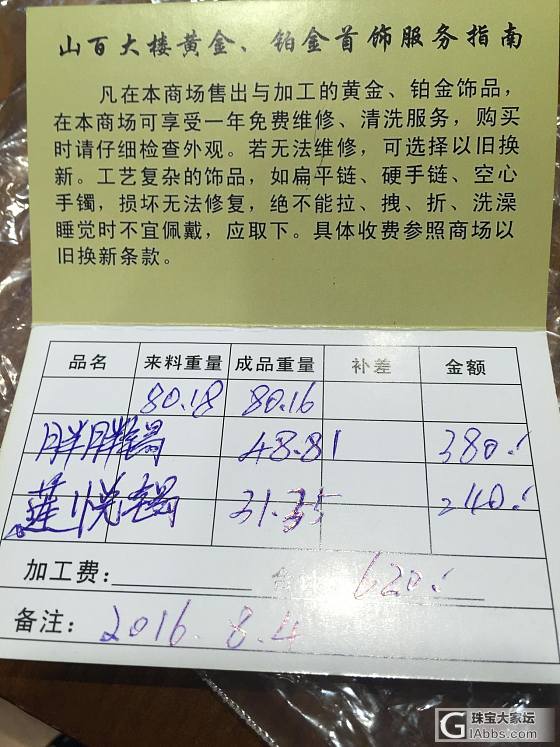 山百大楼黄金、铂金首饰服务指南
凡在本商场售出与加工的黄金、铂金饰品，
在本商场可享受一年免费维修、清洗服务，购买
时请仔细检查外观。若无法维修，可选择以旧换
新。工艺复杂的饰品，如扁平链、硬手链、空心
手镯，损坏无法修复，绝不能拉、拽、折、洗澡
睡觉时不宜佩戴，应取下。具体收费参照商场以
旧换新条款。
品名 来料重量 成品重量 补差 金额
80.18 80.16
胖胖镯 48.81 380.
莲 悦 镯 31.35 240.
加工费： 620.
备注：2016.8.4
珠宝大家坛
GIAbbs.com